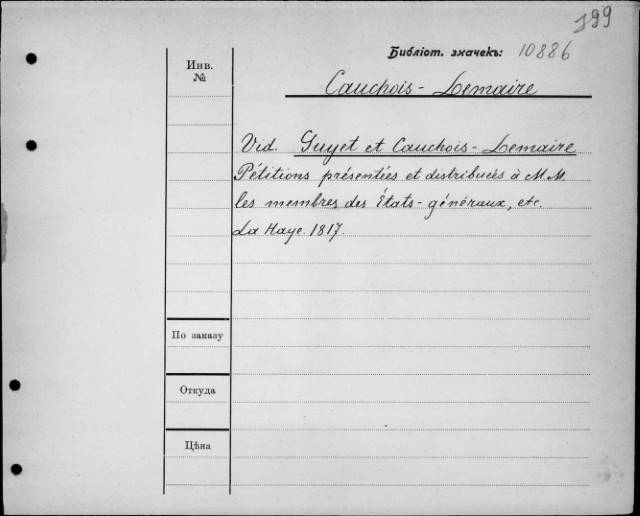 199
Библіот. значекъ: 10886
Инв.
№
Cauchois - Lemaire
Vid. Guyet et Cauchois - Lemaire
Pétitions présentées et distribuées à M.M.
les membres des États - généraux, etc.
La Haye. 1817.
По заказу
Откуда
Цѣна